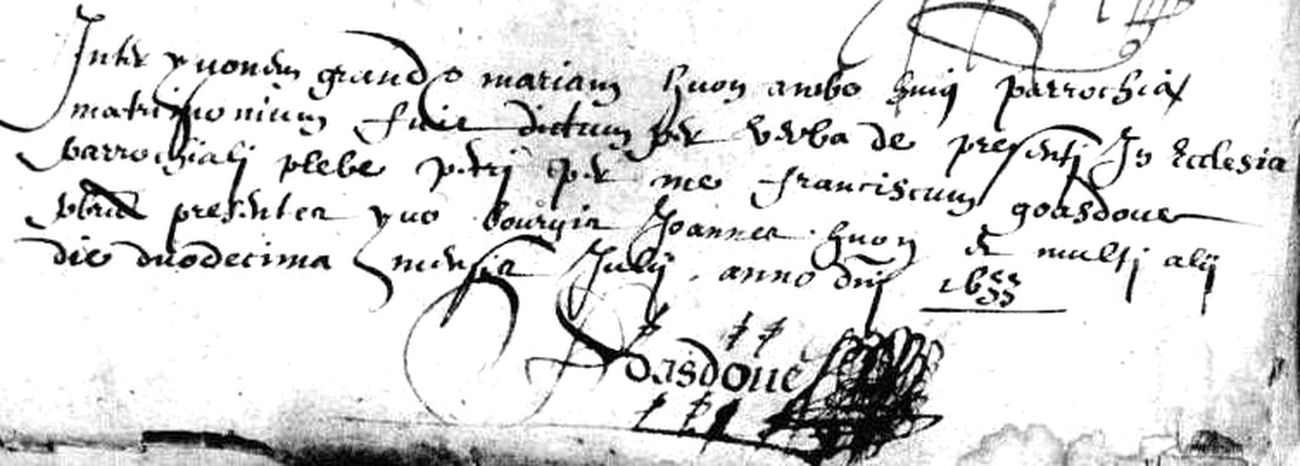 Inter yvonem grand & mariam huon ambo huiq parrochiæ
matrimonium fuit dictum per verba de presenti In Ecclesia
parrochiali plebe petri per me franciscum goasdoue
pbrũ presentes yvo bourgis Joannes huon & multi alij
die duodecima mensis Julij anno dnj 1633
Goasdoue